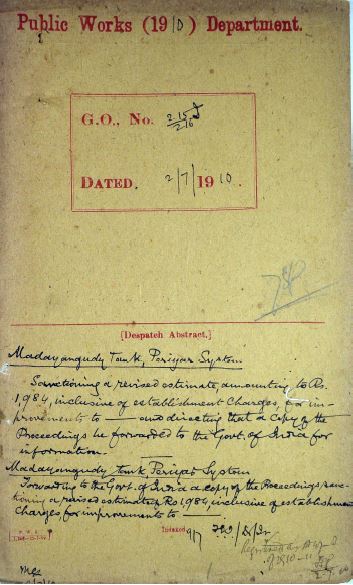 Public Works (1910) Department.
G.O., No. 215
216
DATED, 2/7/1910.
[Despatch Abstract.]
Madayangudy Tank, Periyar System
Sanctioning a revised estimate, amounting to Rs.
1,984, inclusive of establishment charges, for im-
provements to — and directing that a copy of the
Proceedings be forwarded to the Govt. of India for
information.
Madayangudy tank, Periyar System
Forwarding to the Govt. of India a copy of the Proceedings sanc-
tioning a revised estimate, Rs. 1,984, inclusive of establishment
charges for improvements to
Indexed 9/7